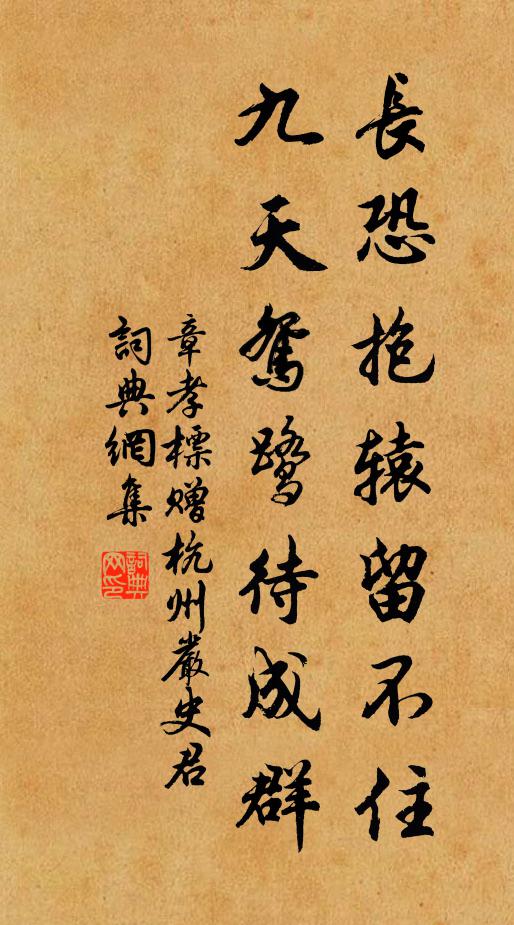 長恐抱辕留不住
九天鴛鷺待成群
章孝標贈杭州嚴史君
詞典網集
詞典網印